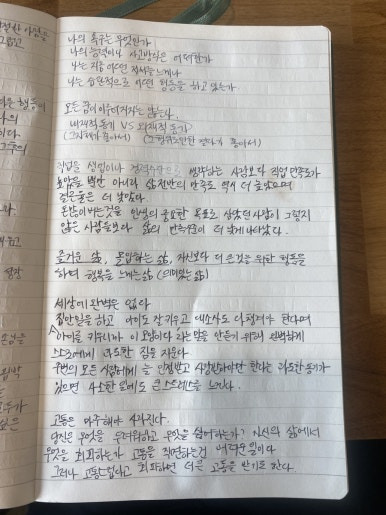 나의 욕구는 무엇인가
나의 능력이나 사고방식은 어떠한가
나는 지금 어떤 정서를 느끼나
나는 습관적으로 어떤 행동을 하고 있는가
모든 꿈이 이루어지지는 않는다.
내재적동기 VS 외재적 동기
(그자체가 좋아서)
좋아서)
직업을 생업이나 생각하는 사람보다 직업 만족도
높았을 뿐만 아니라 삶 전반의 만족도 역시 더 높았으며
결근율은 더 낮았다.
돈 많이 버는것을 인생의 중요한 목표로 삼았던 사람이 그렇지
않은 사람들보다 삶의 만족도가 더 낮게 나타났다.
즐거운 삶, 몰입하는 삶, 자신보다 더 큰 것을 위한 행동을
하며 행복을 느끼는 삶 (의미있는 삶)
세상에 완벽은 없다
집안일을 하고 아이도 잘 키우고 대소사도 다 챙겨야 한다며
아이를 키우니까 이 모양이다 라는 말을 안 듣기 위해 완벽하게
스스로에게 과도한 짐을 지운다
주변의 모든 사람에게 늘 인정받고 사랑받아야만 한다는 과도한 동기가
있으면 사소한 일에도 큰 스트레스를 느낀다.
고통은 아주
당신은 무엇을 두려워하고 무엇을 싫어하는가? 자신의 삶에서
무엇을 회피하는가 고통을 직면하는건 어려운일이다
그러나 고통스럽다고 회피하면 더 큰 고통을 받기도 한다.